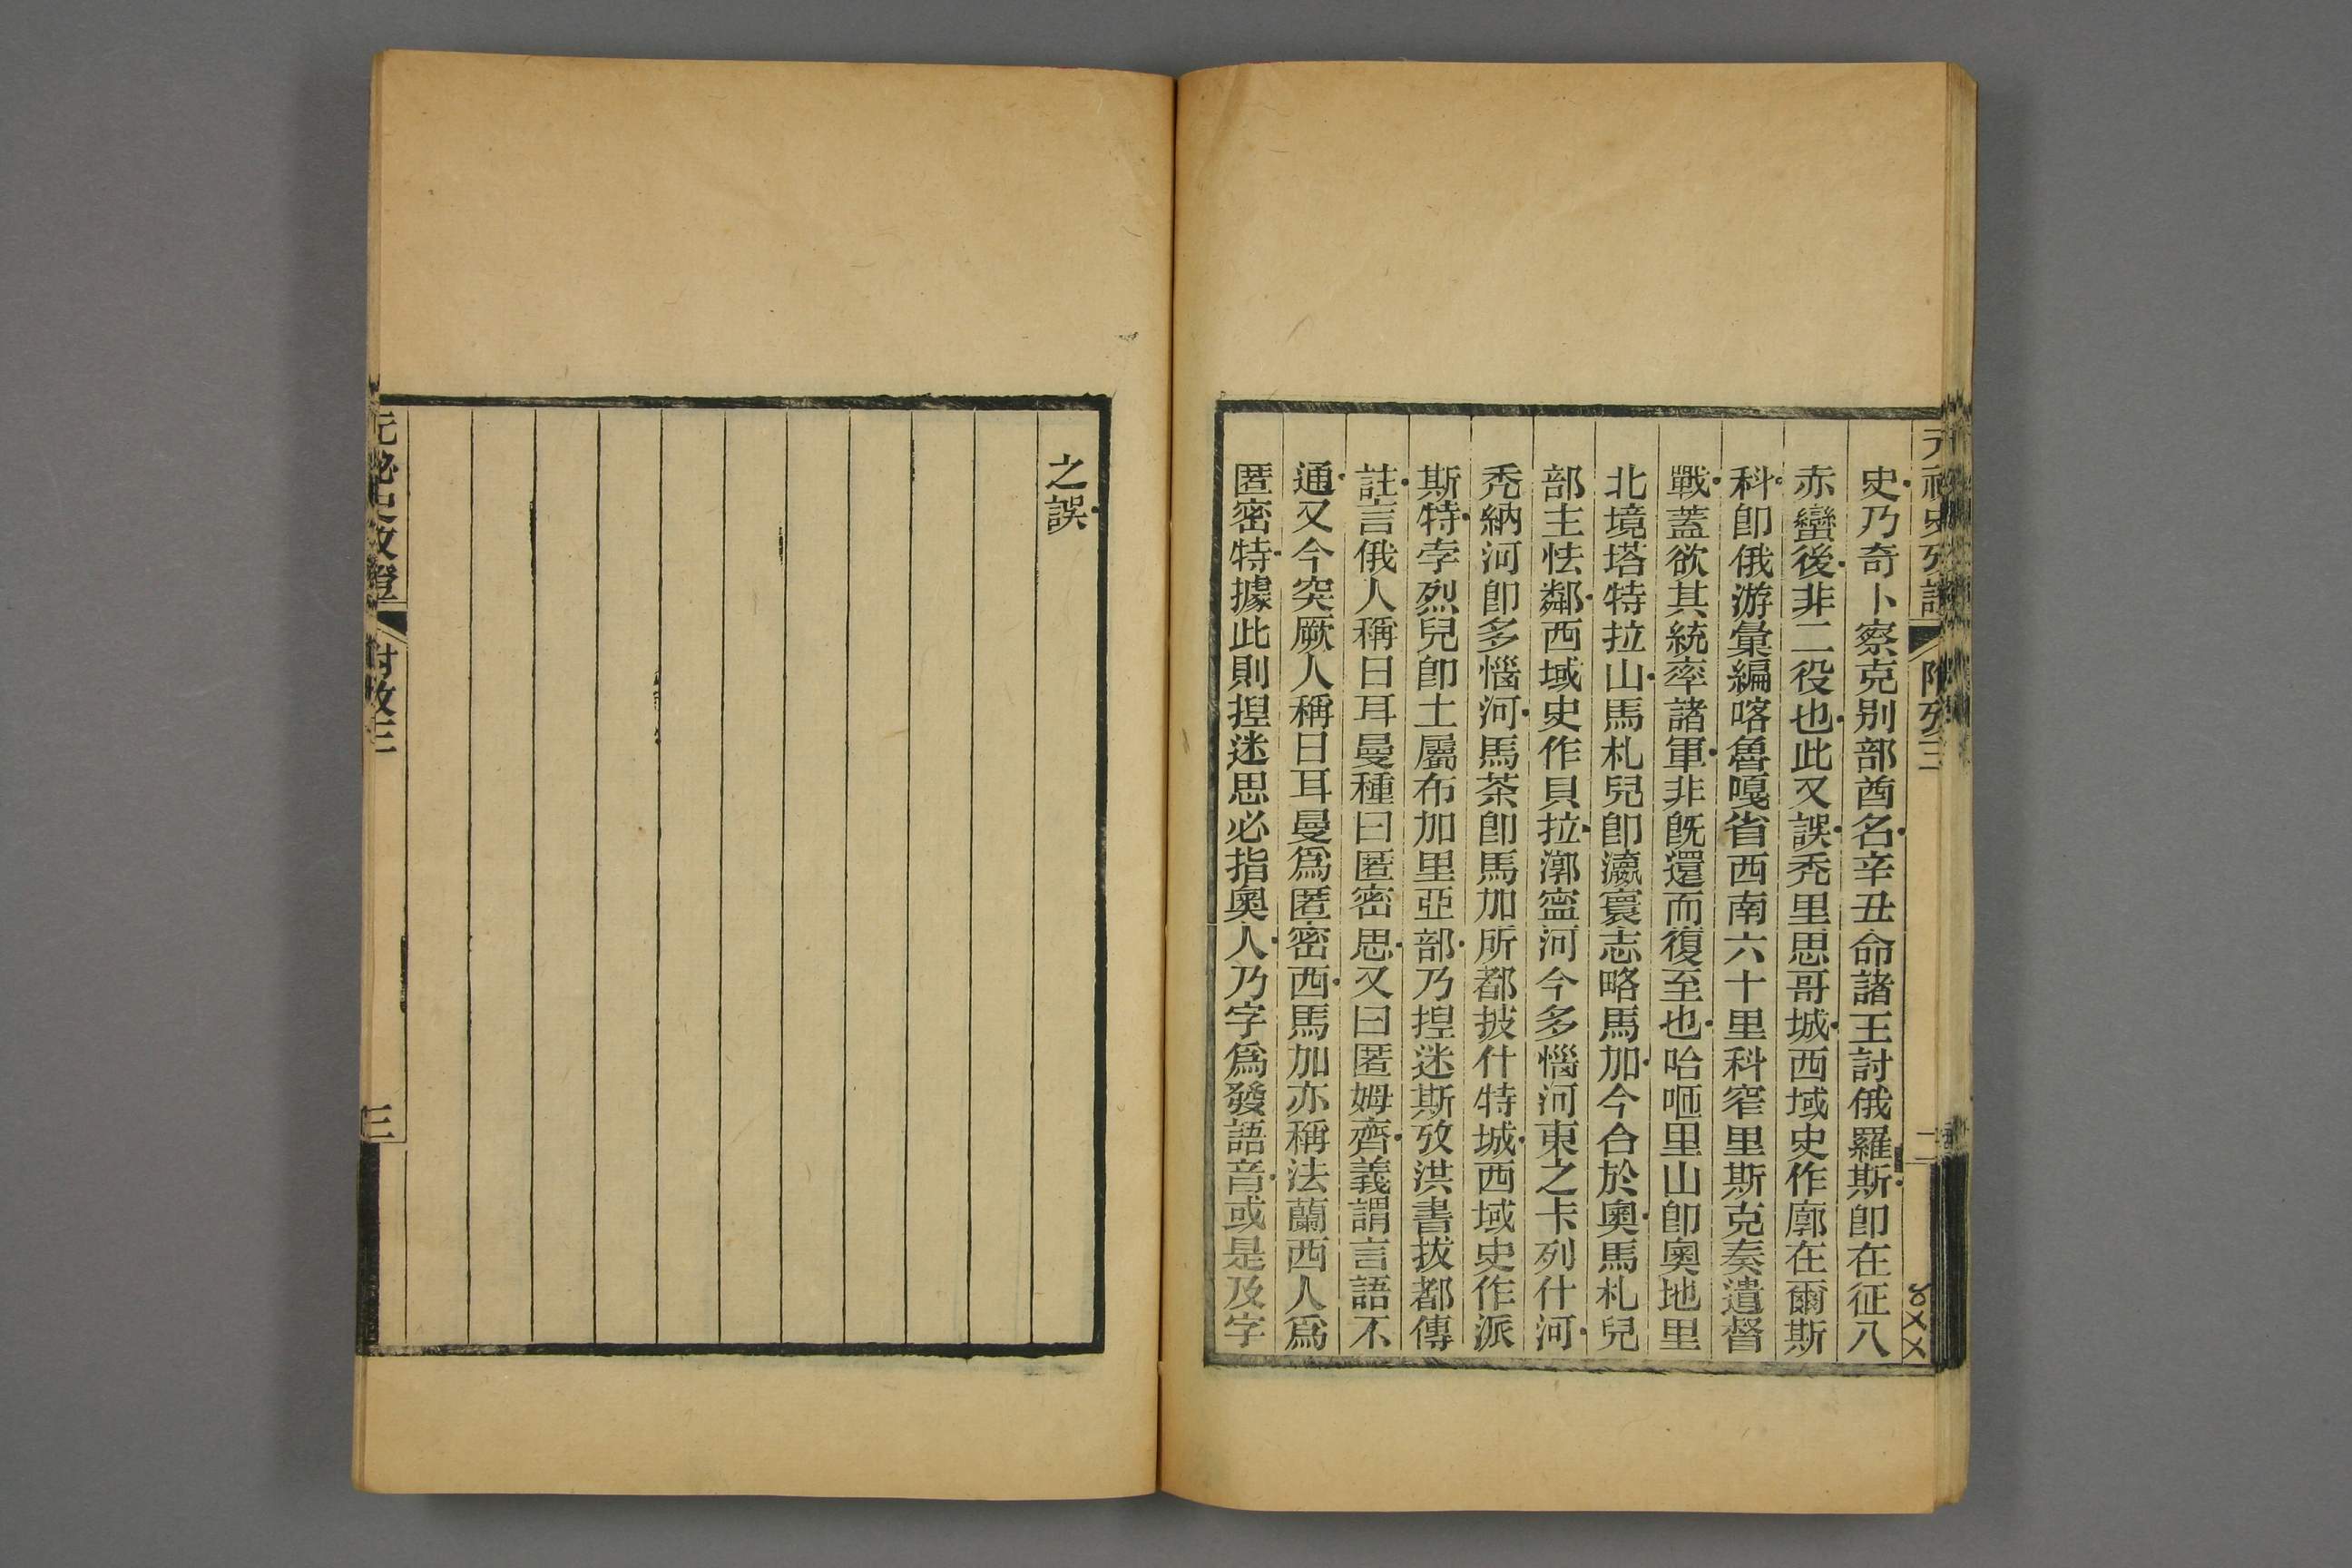 史乃奇卜察克別部酋名辛丑命諸王討俄羅斯卽在征八
赤蠻後非二役也此又誤禿里思哥城西域史作廓在爾斯
科卽俄游彙編喀魯嘎省西南六十里科窄里斯克奏遣督
戰蓋欲其統率諸軍非旣還而復至也哈咂里山卽奧地里
北境塔特拉山馬札兒卽瀛寰志略馬加今合於奧馬札兒
部主怯鄰西域史作貝拉漷寍河今多惱河東之卡列什河
禿納河卽多惱河馬茶卽馬加所都披什特城西域史作派
斯特孛烈兒卽土屬布加里亞部乃捏迷斯攷洪書拔都傳
註言俄人稱日耳曼種曰匿密思又曰匿姆齊義謂言語不
通又今突厥人稱日耳曼爲匿密西馬加亦稱法蘭西人爲
匿密特據此則捏迷思必指奧人乃字爲發語音或是及字
之誤
元祕史攷證
附攷三
三